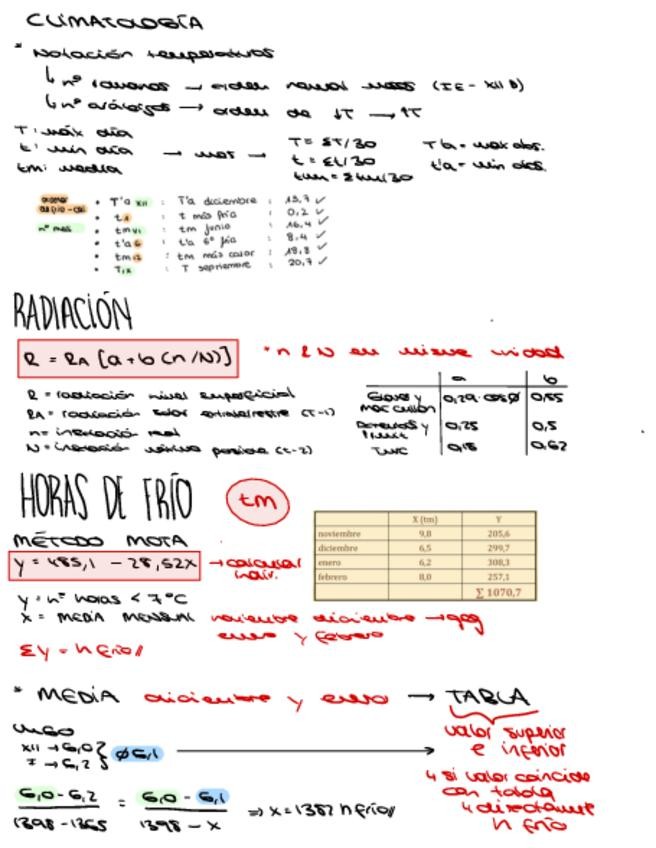 CLIMATOLOGÍA
* Notación temperaturas
↳ nº romanos → orden normal meses (I E - XII D)
↳ nº arábigos → orden de ↓T → ↑T
T: máx día
t: mín día → mes → T = ΣT/30 T'a = max abs.
tm: media t = Σt/30 t'a = min abs.
tm = Σtm/30
• T'a XII : T'a diciembre : 15,7 ✓
nº mes • t1 : t más fría : 0,2 ✓
• tm VI : tm junio : 16,4 ✓
• t'a 6 : t'a 6º fría : 8,4 ✓
• tm 12 : tm más calor : 19,8 ✓
• T IX : T septiembre : 20,7 ✓
RADIACIÓN
R = RA [a + b (n/N)] * n & N en misma unidad
a b
R = radiación nivel superficial Glover y McCulloch 0,29·cosø 0,55
RA = radiación solar extraterrestre (T-1)
n = insolación real 0,25 0,5
N = insolación máxima posible (t-2) 0,18 0,62
HORAS DE FRÍO tm
MÉTODO MOTA
y = 485,1 - 28,52x → calcular indiv.
X (tm) Y
noviembre 9,8 205,6
diciembre 6,5 299,7
enero 6,2 308,3
febrero 8,0 257,1
∑ 1070,7
y = nº horas < 7ºC
x = MEDIA MENSUAL noviembre diciembre
enero y febrero
Σy = h frío//
* MEDIA diciembre y enero → TABLA
valor superior
e inferior
XII → 6,0
I → 6,2 } ø 6,1
↳ si valor coincide
con tabla
↳ directamente
h frío
6,0 - 6,2 / 1398 - 1365 = 6,0 - 6,1 / 1398 - x => x = 1382 h frío//